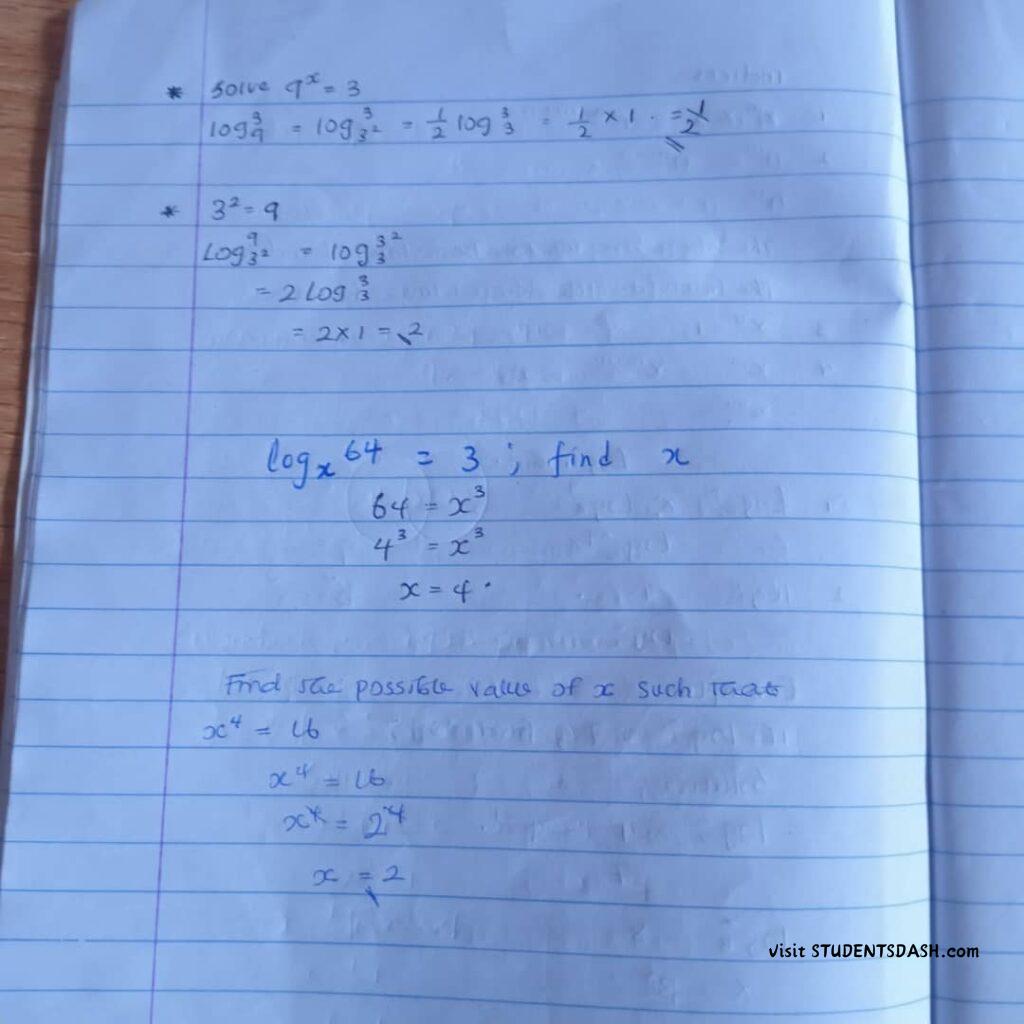 * Solve 9ˣ = 3
log₉³ = log₃²³ = 1/2 log₃³ = 1/2 × 1 . = 1/2
* 3² = 9
Log₃²⁹ = log₃3²
= 2 Log₃³
= 2 × 1 = 2
logₓ 64 = 3 ; find x
64 = x³
4³ = x³
x = 4 .
Find the possible value of x such that
x⁴ = 16
x⁴ = 16
x⁴ = 2⁴
x = 2
visit STUDENTSDASH.com